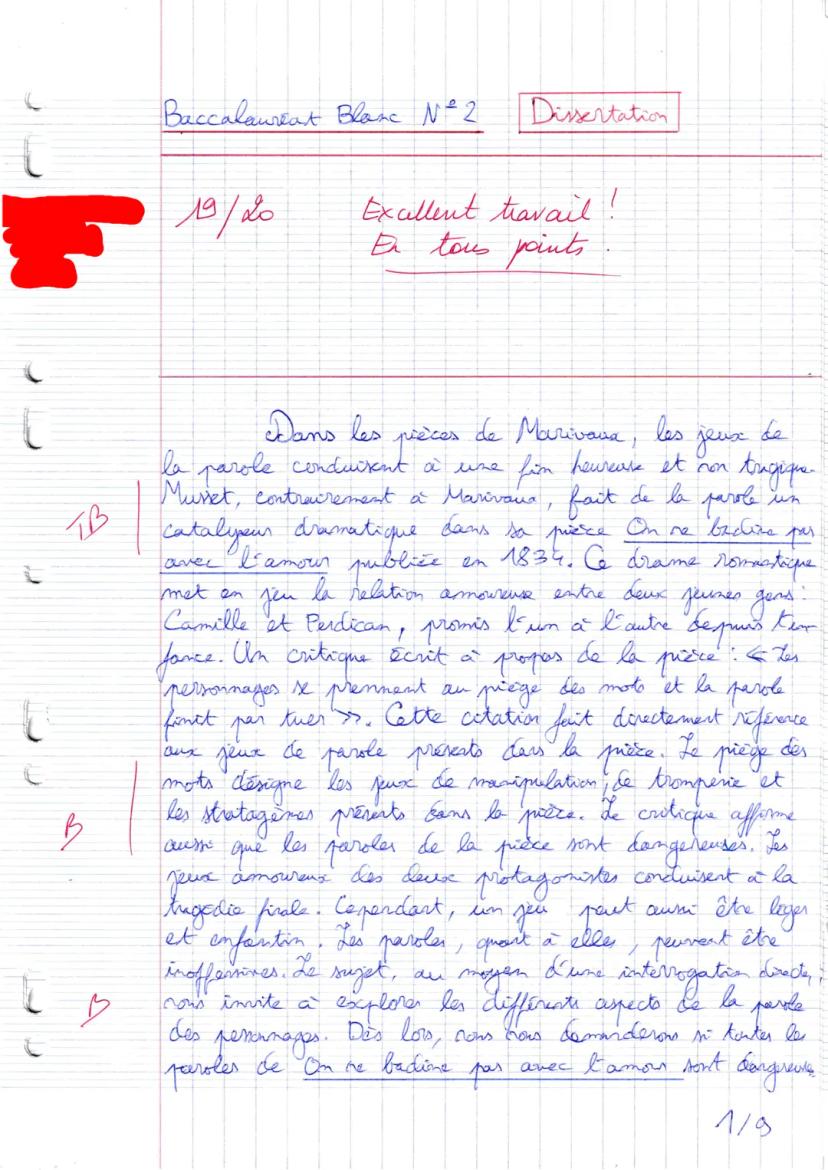 Baccalauréat Blanc N° 2 Dissertation
19/20 Excellent travail !
En tous points.
Dans les pièces de Marivaux, les jeux de
la parole conduisent à une fin heureuse et non tragique.
Musset, contrairement à Marivaux, fait de la parole un
TB
catalyseur dramatique dans sa pièce On ne badine pas
avec l'amour publiée en 1834. Ce drame romantique
met en jeu la relation amoureuse entre deux jeunes gens :
Camille et Perdican, promis l'un à l'autre depuis l'en-
fance. Un critique écrit à propos de la pièce : « Les
personnages se prennent au piège des mots et la parole
finit par tuer ». Cette citation fait directement référence
aux jeux de parole présents dans la pièce. Le piège des
mots désigne les jeux de manipulation, de tromperie et
les stratagèmes présents dans la pièce. Le critique affirme
B
aussi que les paroles de la pièce sont dangereuses. Les
jeux amoureux des deux protagonistes conduisent à la
tragédie finale. Cependant, un jeu peut aussi être léger
et enfantin. Les paroles, quant à elles, peuvent être
inoffensives. Le sujet, au moyen d'une interrogation directe,
nous invite à explorer les différents aspects de la parole
B
des personnages. Dès lors, nous nous demanderons si toutes les
paroles de On ne badine pas avec l'amour sont dangereuses
1/9